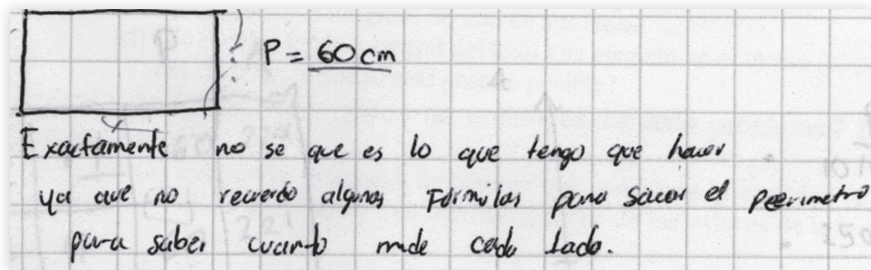 P = 60 cm
Exactamente no se que es lo que tengo que hacer
ya que no recuerdo algunas Formulas para sacar el peerimetro
para saber cuanto mide cada lado.